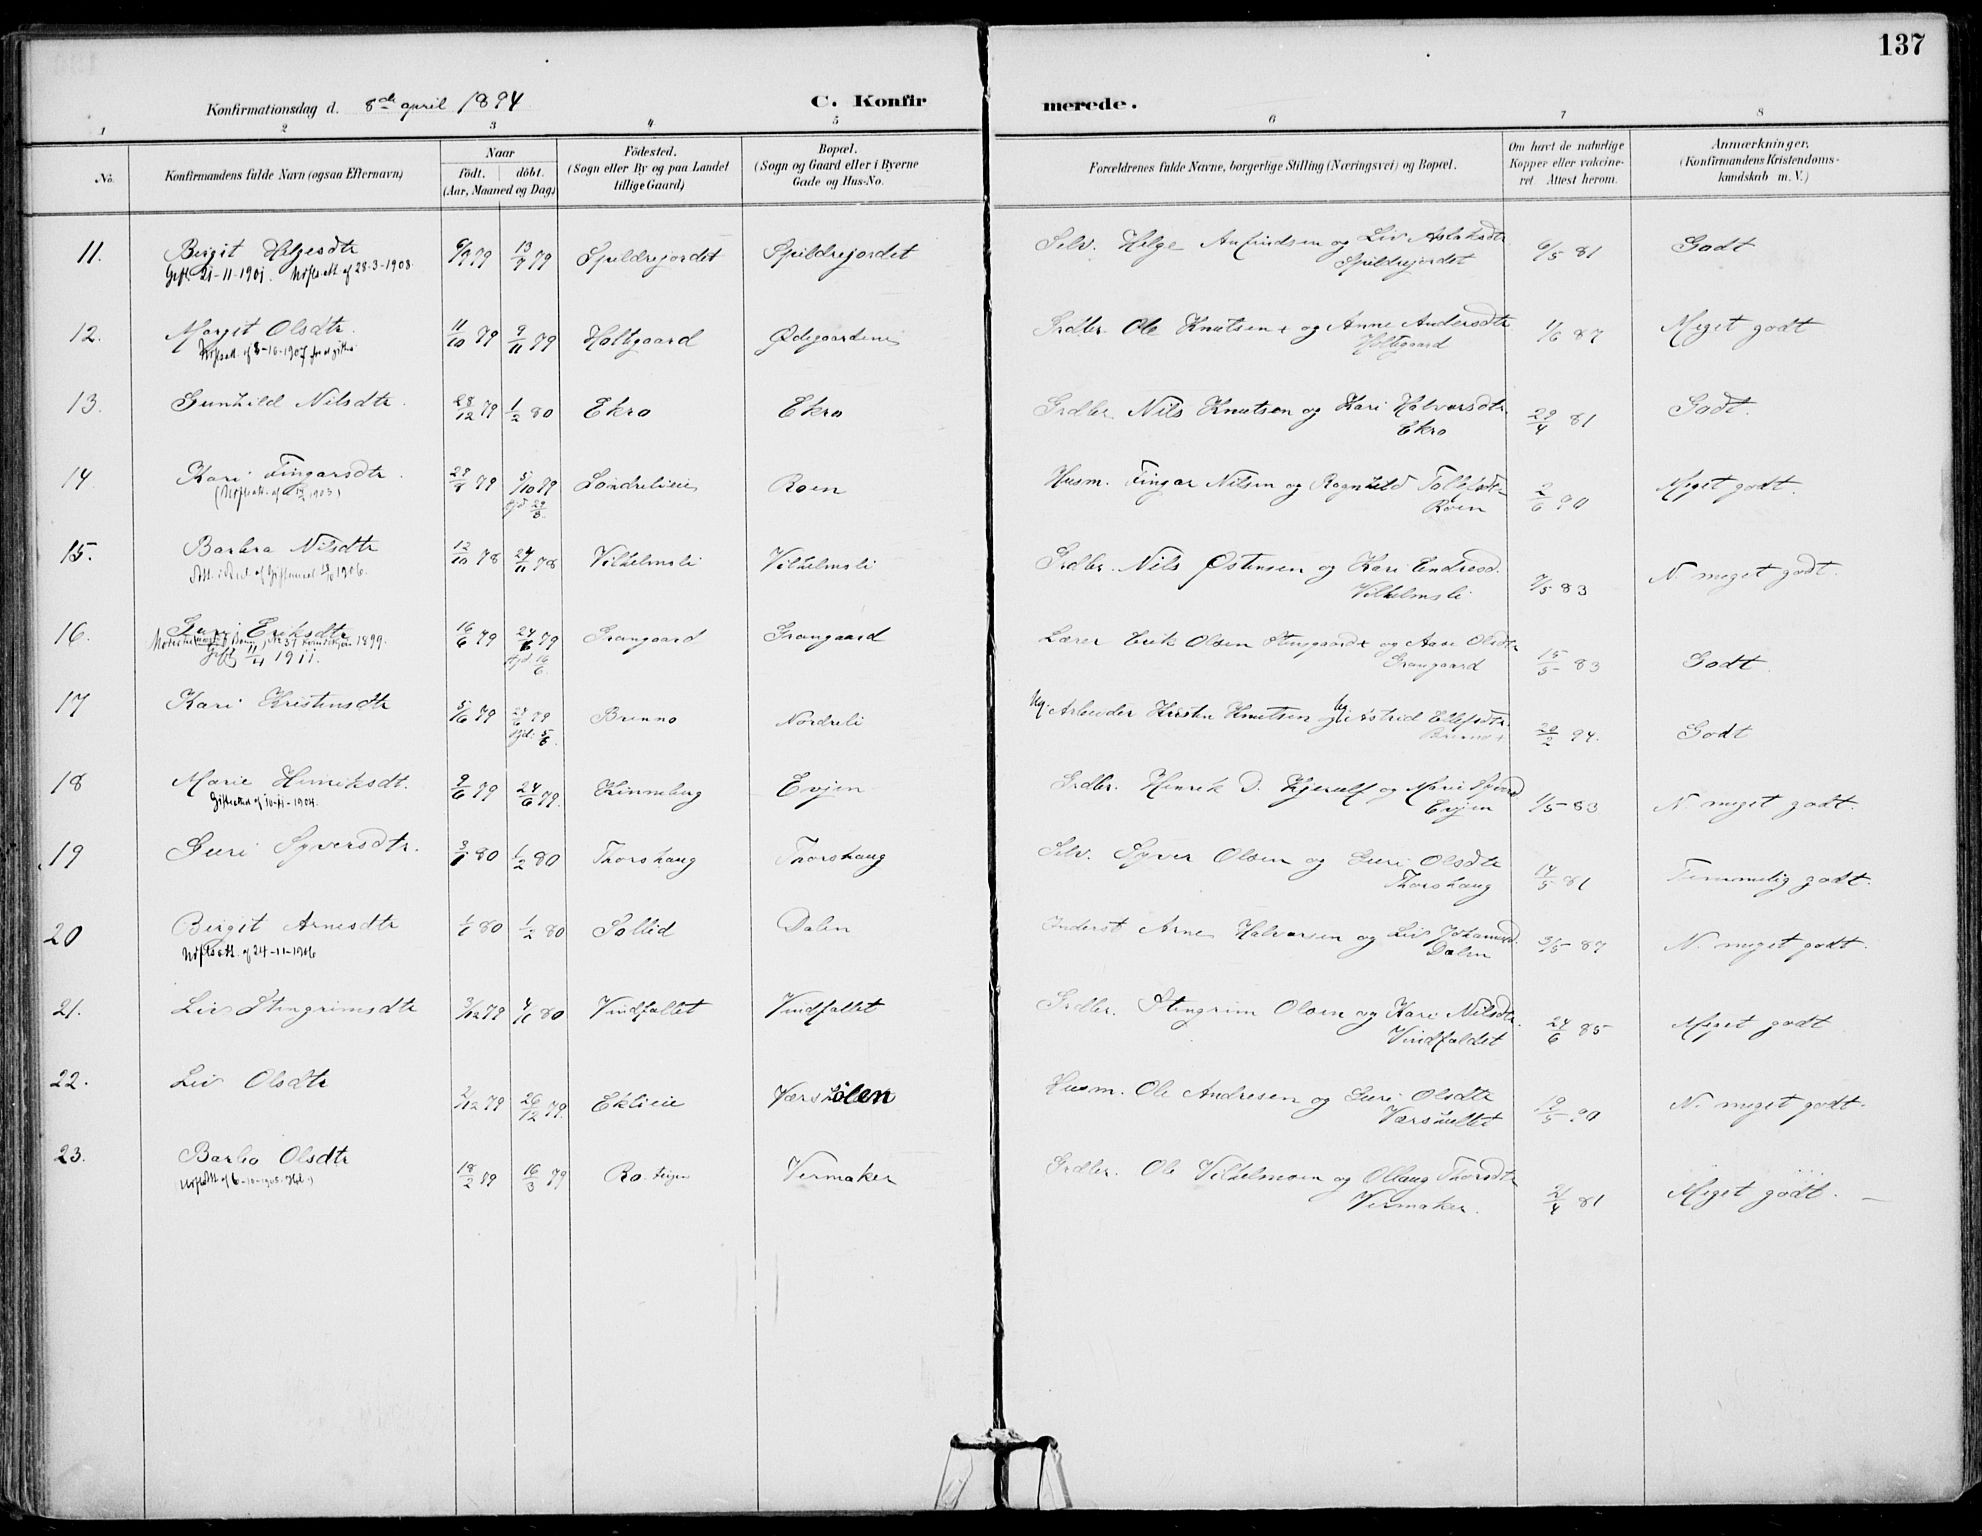 137
Konfirmationsdag d. 8de april 1894 C. Konfirmerede.
1 2 3 4 5 6 7 8
No.
Konfirmandens fulde Navn (ogsaa Efternavn)
Naar
födt. döbt.
(Aar, Maaned og Dag)
Födested.
(Sogn eller By og paa Landet
tillige Gaard)
Bopæl.
(Sogn og Gaard eller i Byerne
Gade og Hus-No.
Forældrenes fulde Navne, borgerlige Stilling (Næringsvei) og Bopæl.
Om havt de naturlige
Kopper eller vakcine-
ret Attest herom.
Anmærkninger.
(Konfirmandens Kristendoms-
kundskab m. V.)
11. Birgit Helgesdtr 6/7 79 13/7 79 Spildrejordet Spildrejordet Selv. Helge Anfindsen og Liv Aslaksdtr 6/5 81 Godt
Gift 21-11-1901. 28-3-1908 Spildrejordet
12. Margit Olsdtr. 11/10 79 9/11 79 Holtgaard Ødegaardene Grdbr. Ole Knutsen + og Anne Andersdtr 1/6 87 Meget godt
Holtgaard
13. Gunhild Nilsdtr. 28/12 79 1/2 80 Ekro Ekro Grdbr. Nils Knutsen og Kari Halvorsdtr 29/4 81 Godt.
Ekro
14. Kari Fingarsdtr. 79 5/10 79 Roen Husm. Fingar Nilsen og Ragnhild 2/6 90 Meget godt.
Roen
15. Barbra Nilsdtr 12/10 78 24/11 78 Vilhelmsli Vilhelmsli Grdbr. Nils Østensen og Kari Endresd. 7/5 83 N. meget godt.
1906. Vilhelmsli
16. Guri Eriksdtr 16/6 79 24/6 79 Grangaard Grangaard Lærer Erik Olsen og Aase Olsdtr 15/5 83 Godt.
1899.
Gift 11/4 1911. Grangaard
17 Kari Kristensdtr 5/6 79 24/6 79 Brenno Nordreli Ug. Arbeider Kristen Knutsen og Ug. Astrid Ellefsdtr. 20/2 94. Godt
hjd. 5/6. Brenno
18 Marie Henriksdt. 9/6 79 24/6 79. Kinneberg Evjen Grdbr. Henrik D. Kjerulf og Marie 1/5 83 N meget godt.
10-11-1904. Evjen
19 Guri Syversdtr. 3/1 80 1/2 80 Thorshaug Thorshaug Selv. Syver Olsen og Guri Olsdtr 14/5 81 Temmelig godt.
Thorshaug
20 Birgit Arnesdtr 1/1 80 1/2 80 Sollid Dalen Inderst Arne Halvorsen og Liv Johannesd. 3/5 87 N. meget godt.
24-11-1906 Dalen
21. Liv Stengrimsdtr 3/12 79 4/1 80 Vindfallet Vindfallet Grdbr. Stengrim Olsen og Kari Nilsdtr. 24/6 85 Meget godt
Vindfaldet
22. Liv Olsdtr 2/12 79 26/12 79. Eklieie Husm. Ole Andresen og Guri Olsdtr 19/5 90 N. meget godt.
23. Barbo Olsdtr 18/2 79 16/3 79 Ro. teigen Vermaker Grdbr. Ole Vilhelmsen og Ollaug Thorsdtr 21/4 81 Meget godt. —
Vermaker.